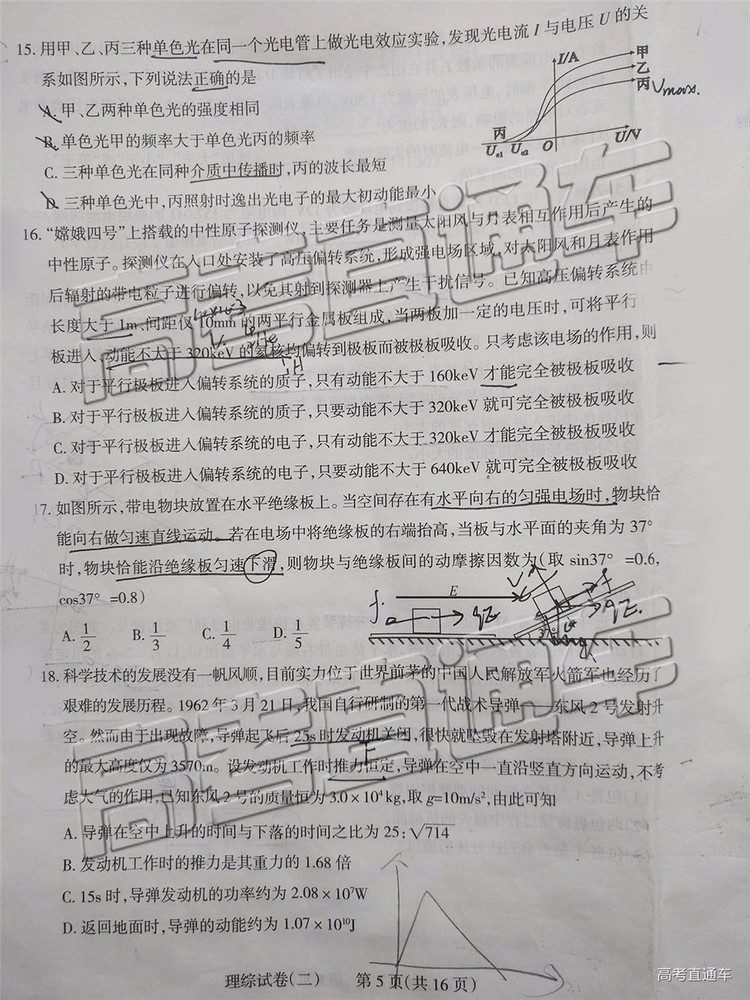 15. 用甲、乙、丙三种单色光在同一个光电管上做光电效应实验，发现光电流 I 与电压 U 的关
系如图所示，下列说法正确的是
A. 甲、乙两种单色光的强度相同
B. 单色光甲的频率大于单色光丙的频率
C. 三种单色光在同种介质中传播时，丙的波长最短
D. 三种单色光中，丙照射时逸出光电子的最大初动能最小
I/A
甲
乙
丙 Vmax.
丙
Uc1 Uc2 O U/V
16. “嫦娥四号”上搭载的中性原子探测仪，主要任务是测量太阳风与月表相互作用后产生的
中性原子. 探测仪在入口处安装了高压偏转系统，形成强电场区域，对太阳风和月表作用
后辐射的带电粒子进行偏转，以免其射到探测器上产生干扰信号。已知高压偏转系统由
长度大于 1m、间距仅 10mm 的两平行金属板组成，当两板加一定的电压时，可将平行
板进入、动能不大于 320keV 的氦核均偏转到极板而被极板吸收。只考虑该电场的作用，则
A. 对于平行极板进入偏转系统的质子，只有动能不大于 160keV 才能完全被极板吸收
B. 对于平行极板进入偏转系统的质子，只要动能不大于 320keV 就可完全被极板吸收
C. 对于平行极板进入偏转系统的电子，只有动能不大于 320keV 才能完全被极板吸收
D. 对于平行极板进入偏转系统的电子，只要动能不大于 640keV 就可完全被极板吸收
17. 如图所示，带电物块放置在水平绝缘板上。当空间存在有水平向右的匀强电场时，物块恰
能向右做匀速直线运动。若在电场中将绝缘板的右端抬高，当板与水平面的夹角为 37°
时，物块恰能沿绝缘板匀速下滑，则物块与绝缘板间的动摩擦因数为（取 sin37° =0.6，
cos37° =0.8）
A. 1/2 B. 1/3 C. 1/4 D. 1/5
f E qE V f qE mg
18. 科学技术的发展没有一帆风顺，目前实力位于世界前茅的中国人民解放军火箭军也经历了
艰难的发展历程。1962 年 3 月 21 日，我国自行研制的第一代战术导弹——东风 2 号发射升
空。然而由于出现故障，导弹起飞后 25s 时发动机关闭，很快就坠毁在发射塔附近，导弹上升
的最大高度仅为 3570m。设发动机工作时推力恒定，导弹在空中一直沿竖直方向运动，不考
虑大气的作用，已知东风 2 号的质量恒为 3.0 × 10⁴ kg，取 g=10m/s²，由此可知
A. 导弹在空中上升的时间与下落的时间之比为 25：√714
B. 发动机工作时的推力是其重力的 1.68 倍
C. 15s 时，导弹发动机的功率约为 2.08 × 10⁷W
D. 返回地面时，导弹的动能约为 1.07 × 10¹⁰J
理综试卷（二） 第 5 页（共 16 页）
高考直通车
高考直通车
高考直通车